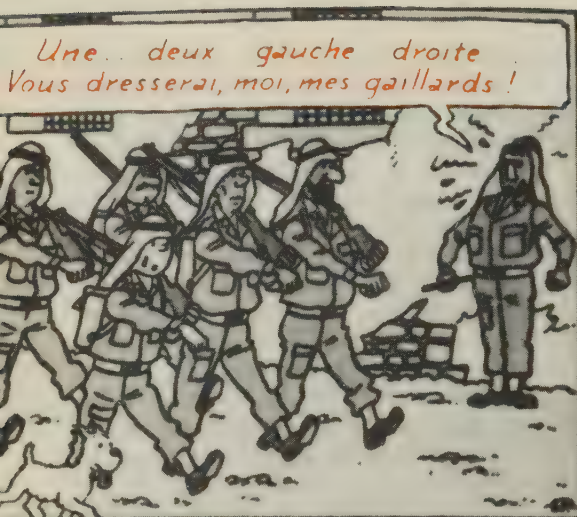 Une.. deux gauche droite
Vous dresserai, moi, mes gaillards !